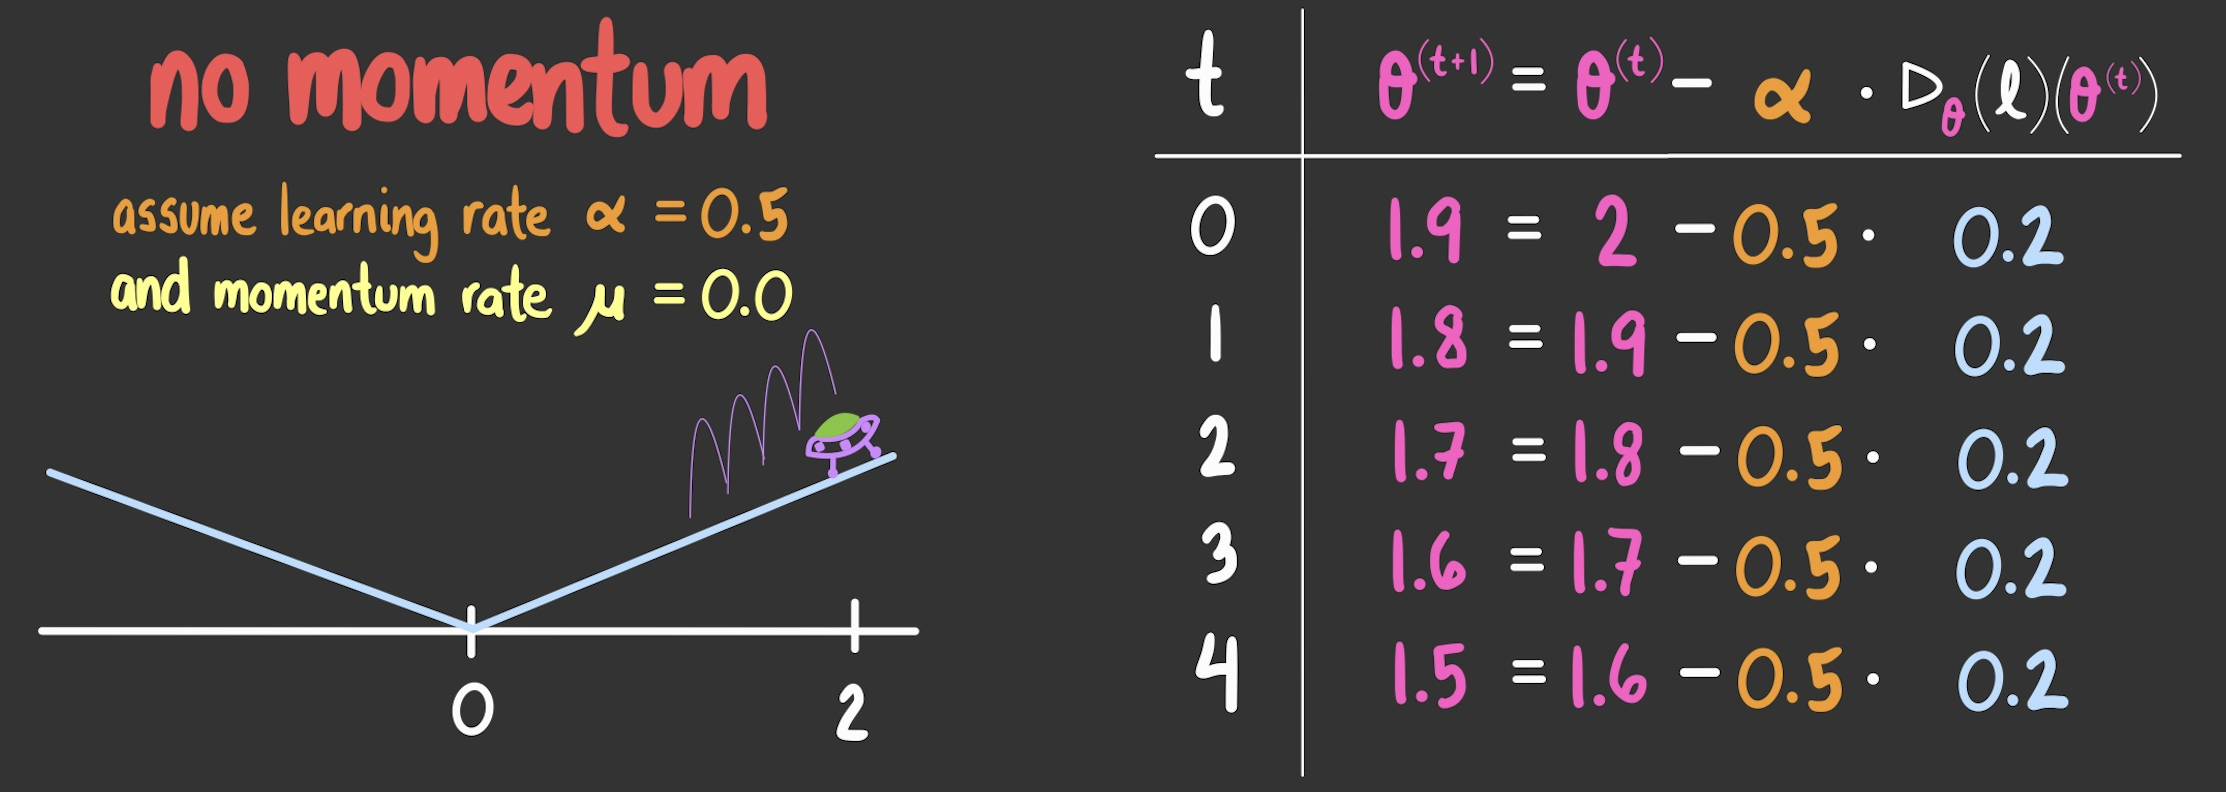 no momentum
assume learning rate α = 0.5
and momentum rate μ = 0.0
0 2
t θ^(t+1) = θ^(t) − α · ▷_θ(ℓ)(θ^(t))
0 1.9 = 2 − 0.5 · 0.2
1 1.8 = 1.9 − 0.5 · 0.2
2 1.7 = 1.8 − 0.5 · 0.2
3 1.6 = 1.7 − 0.5 · 0.2
4 1.5 = 1.6 − 0.5 · 0.2